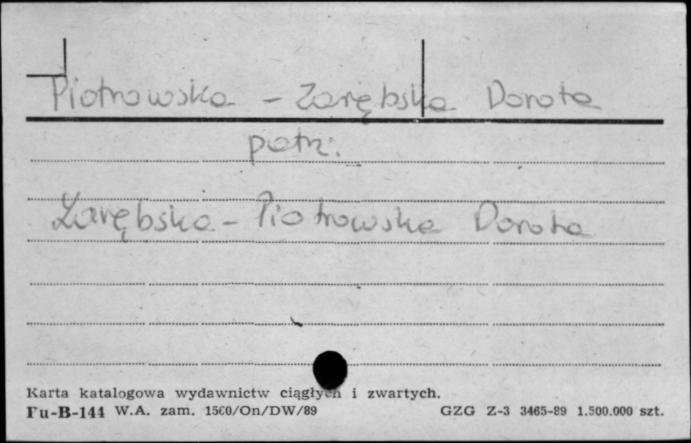 Piotrowska - Zarębska Dorota
patrz:
Zarębska - Piotrowska Dorota
Karta katalogowa wydawnictw ciągłych i zwartych.
Fu-B-144 W.A. zam. 1560/On/DW/89 GZG Z-3 3465-89 1.500.000 szt.